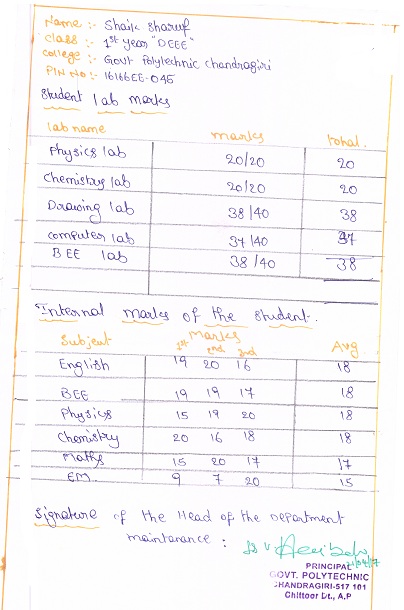 Name :- Shaik Sharuf
Class :- 1st year "DEEE"
College :- Govt Polytechnic Chandragiri
PIN No :- 16166EE-045
Student lab marks
lab name marks total.
Physics lab 20/20 20
Chemistry lab 20/20 20
Drawing lab 38/40 38
computer lab 37/40 37
BEE lab 38/40 38
Internal marks of the student.
Subject Marks Avg
1st 2nd 3rd
English 19 20 16 18
BEE 19 19 17 18
Physics 15 19 20 18
Chemistry 20 16 18 18
Maths 15 20 17 17
EM. 9 7 20 15
Signature of the Head of the Department
maintanance :
PRINCIPAL
GOVT. POLYTECHNIC
CHANDRAGIRI-517 101
Chittoor Dt., A.P